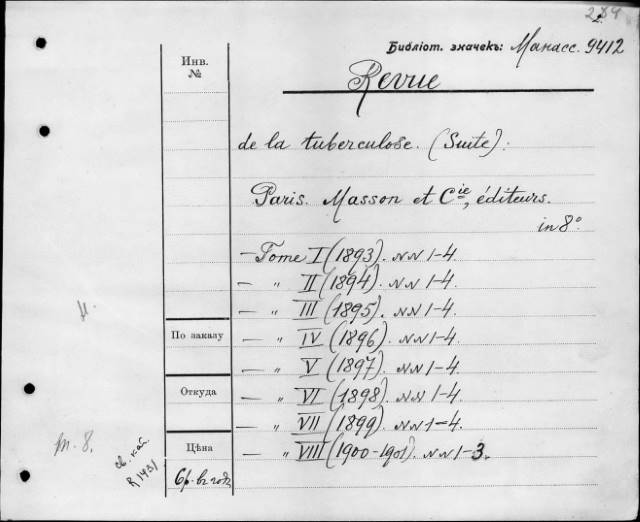 Библіот. значекъ: Манасс. 9412
Инв. №
Revue
de la tuberculose. (Suite):
Paris. Masson et Cie, éditeurs.
in 8°
— Tome I (1893). NN 1-4.
— " II (1894). NN 1-4.
— " III (1895). NN 1-4.
По заказу
— " IV (1896). NN 1-4.
— " V (1897). NN 1-4.
Откуда
— " VI (1898). NN 1-4.
— " VII (1899). NN 1-4.
Цѣна
— " VIII (1900-1901). NN 1-3.
т. 8.
св. кат.
R 1431
6р. въ годъ